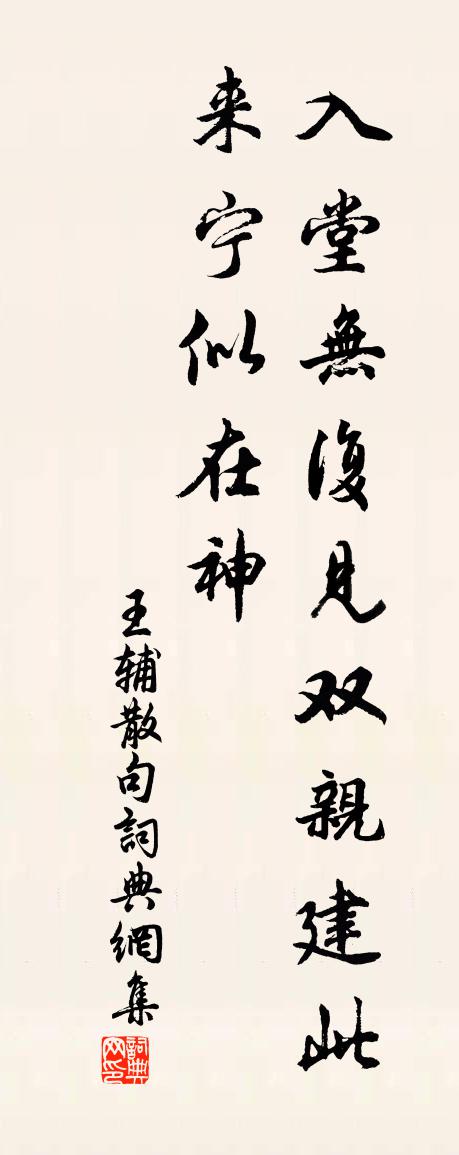 入堂無復見双親建此
来宁似在神
王辅散句詞典網集
詞典网印